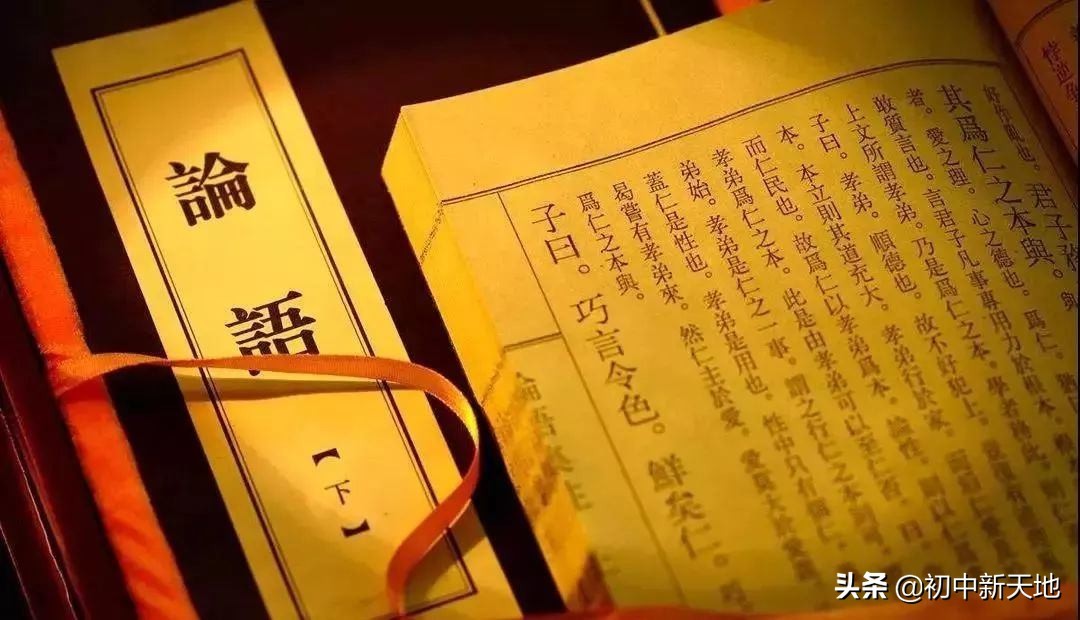 論語
【下】
悖逆爭
好作亂也。君子務
其爲仁之本與。與
者。愛之理。心之德也。爲仁。猶
敢質言也。言君子凡事專用力於根本。根
上文所謂孝弟。乃是爲仁之本。學者務此。則
子曰。孝弟。順德也。故不好犯上。豈復有逆理
本。本立則其道充大。孝弟行於家。而後仁愛
而仁民也。故爲仁以孝弟爲本。論性。則以仁爲
孝弟爲仁之本。此是由孝弟可以至仁否。曰。
弟始。孝弟是仁之一事。謂之行仁之本則可。
蓋仁是性也。孝弟是用也。性中只有個仁。
曷嘗有孝弟來。然仁主於愛。愛莫大於愛親。
爲仁之本與。
子曰。巧言令色。鮮矣仁。
論語集註
头条 @初中新天地